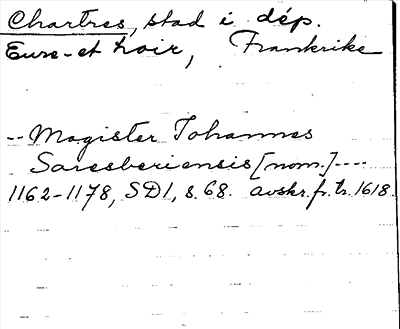 Chartres, stad i dép.
Eure-et Loir, Frankrike
-- Magister Johannes
Saresberiensis [nom.] ----
1162-1178, SD1, s. 68. avskr. fr. tr. 1618.